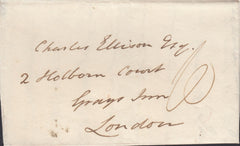 Charles Ellison Esq.
2 Holborn Court
Grays Inn
London